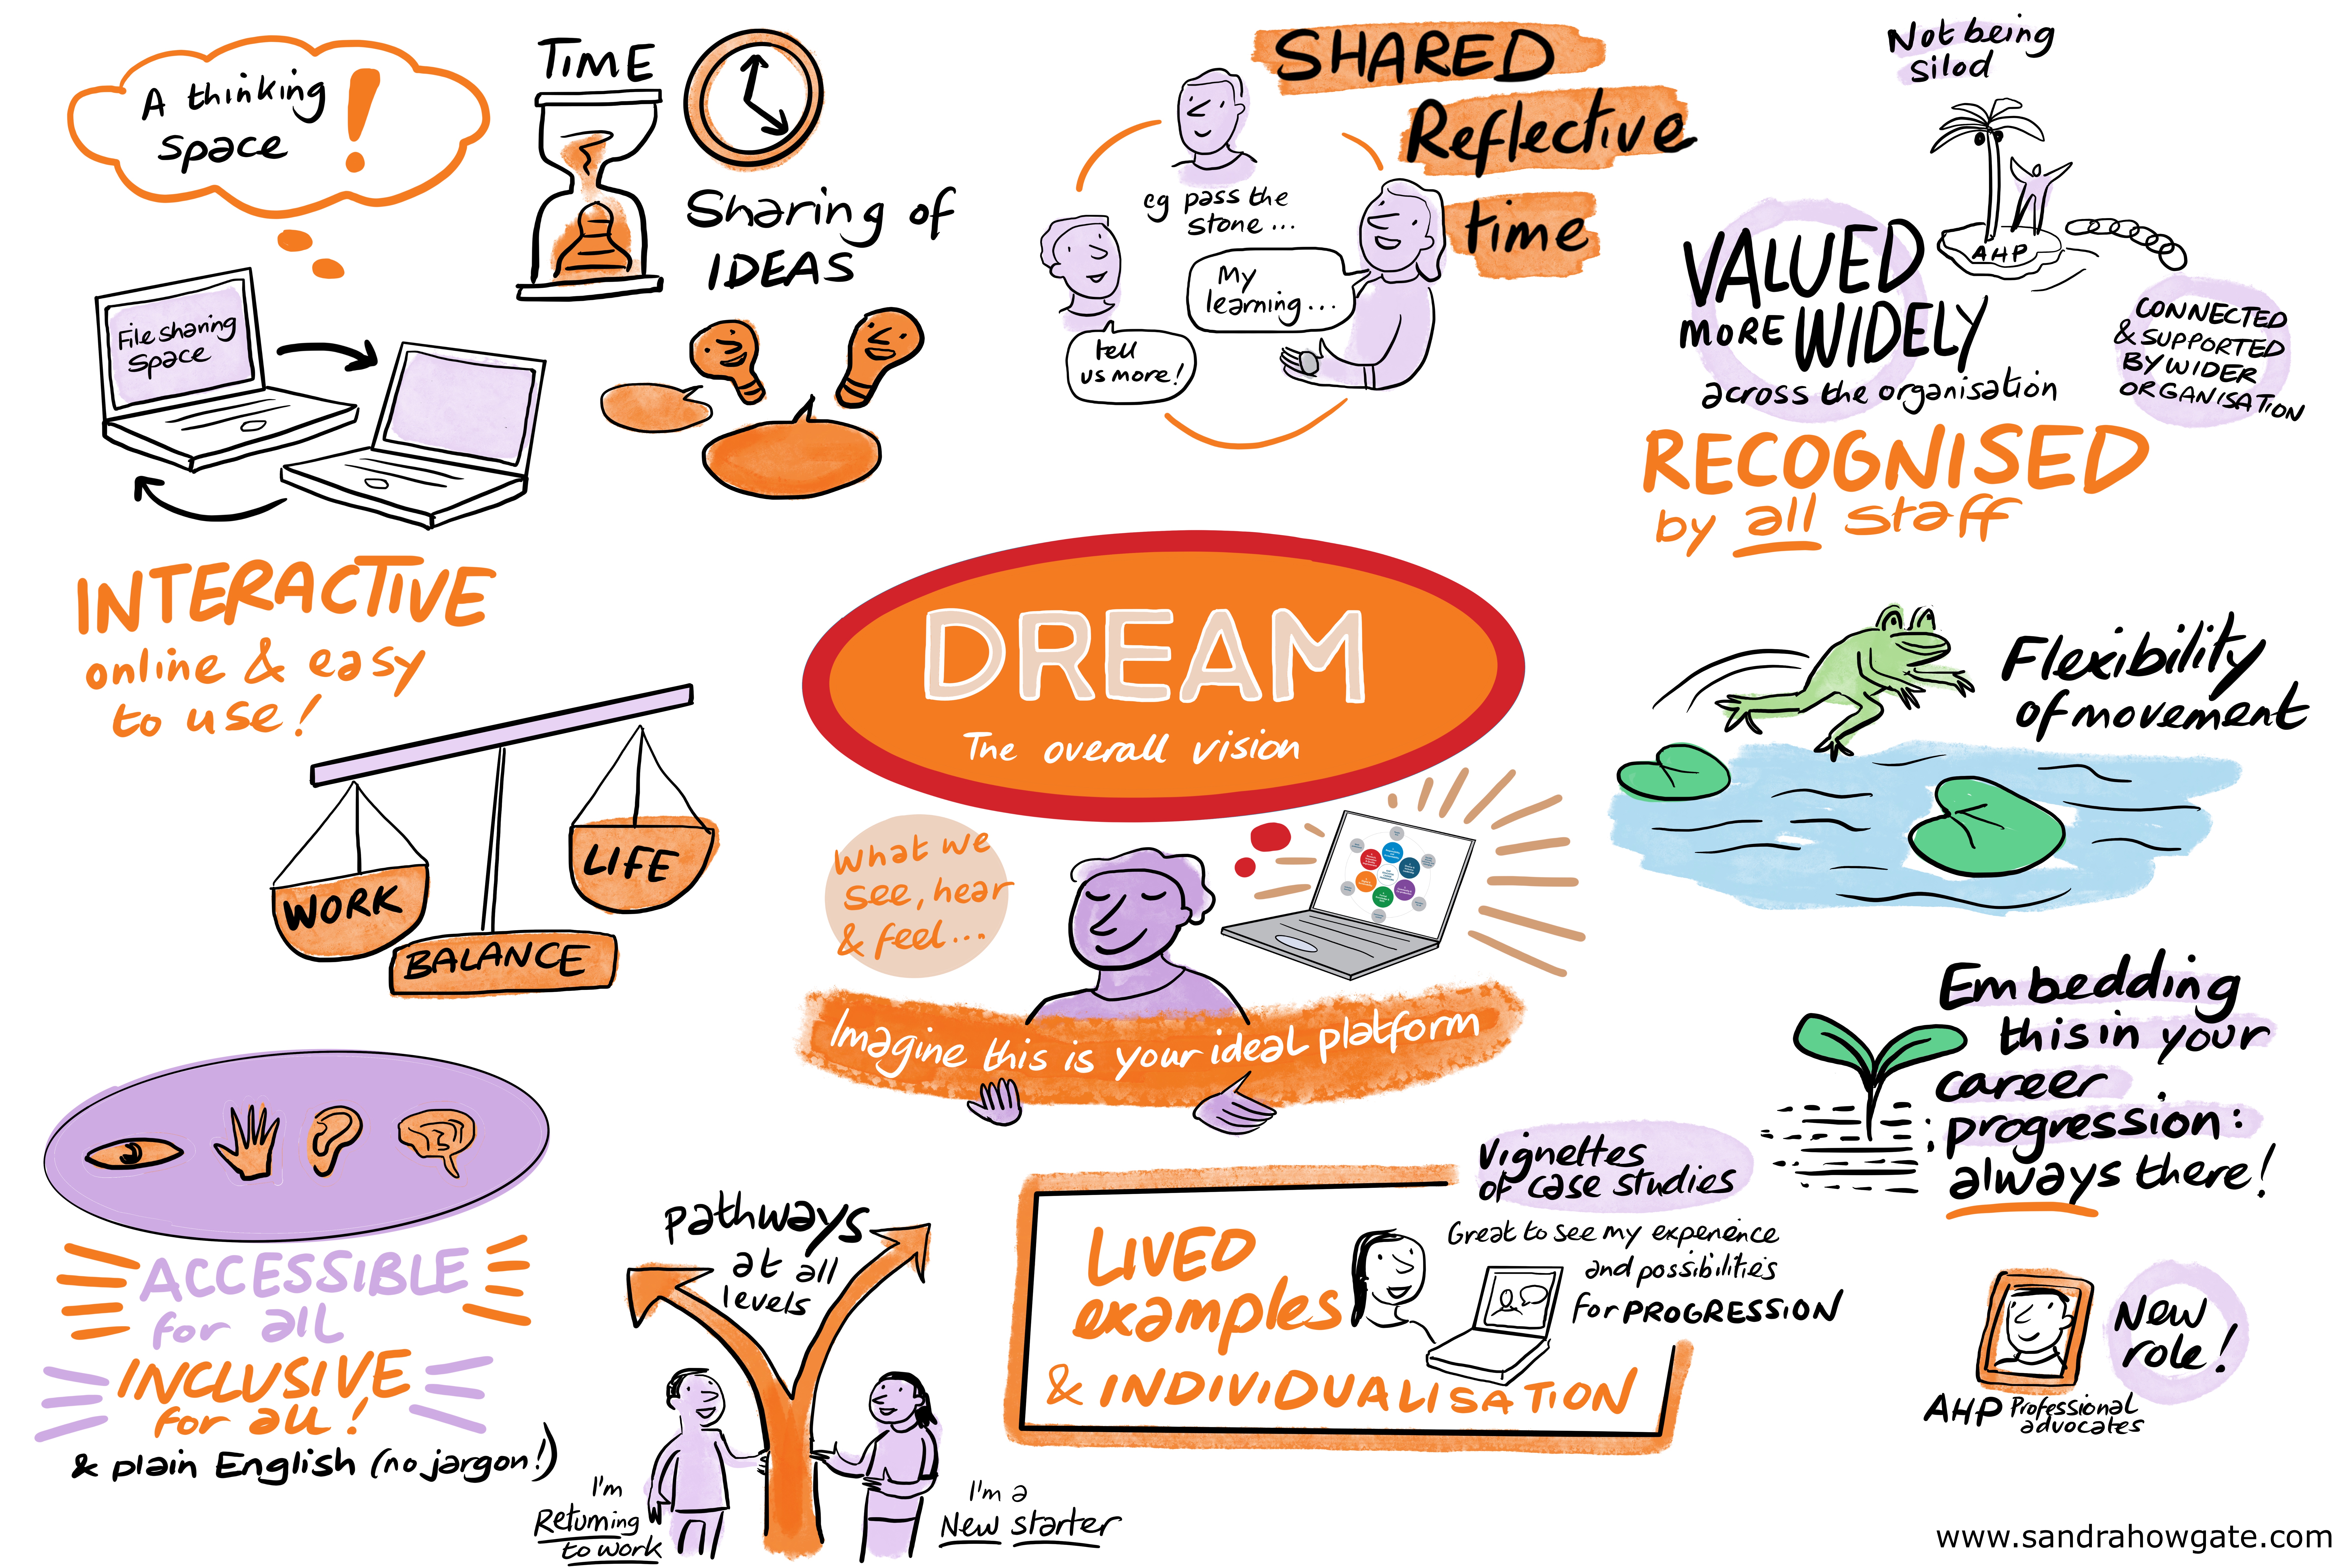 A thinking
space
!
File sharing
Space
TIME
Sharing of
IDEAS
SHARED
Reflective
time
eg pass the
stone...
My
learning...
tell
us more!
Not being
silod
AHP
VALUED
MORE WIDELY
across the organisation
CONNECTED
& SUPPORTED
BY WIDER
ORGANISATION
RECOGNISED
by all staff
INTERACTIVE
online & easy
to use!
WORK
LIFE
BALANCE
DREAM
The overall vision
What we
see, hear
& feel...
Imagine this is your ideal platform
Flexibility
of movement
Embedding
this in your
career
progression:
always there!
ACCESSIBLE
for all
INCLUSIVE
for all!
& plain English (no jargon!)
pathways
at all
levels
I'm
Returning
to work
I'm a
New starter
Vignettes
of case studies
LIVED
examples
& INDIVIDUALISATION
Great to see my experience
and possibilities
for PROGRESSION
New
role!
AHP Professional
advocates
www.sandrahowgate.com